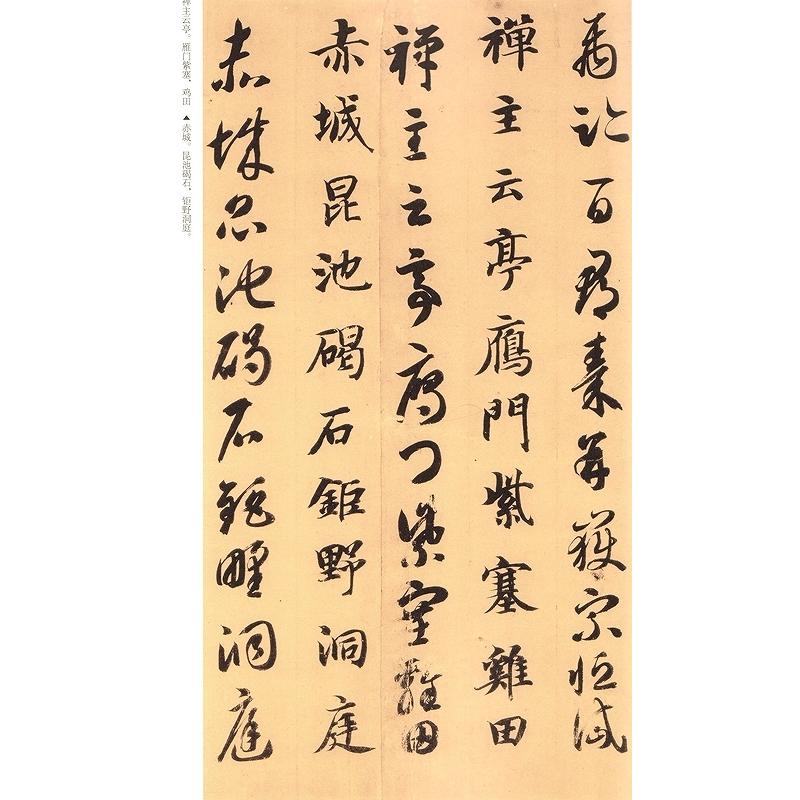 禹跡百郡秦并嶽宗恒岱
禪主云亭鴈門紫塞雞田
禪主云亭鴈門紫塞雞田
赤城昆池碣石鉅野洞庭
赤城昆池碣石鉅野洞庭
禅主云亭。雁门紫塞，鸡田▲赤城。昆池碣石，钜野洞庭。